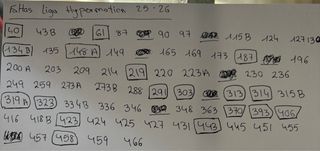 Faltas liga Hypermotion 25-26
40 43B 61 87 90 97 115B 124 127B
134B 135 148A 149 165 169 173 187 196
200A 203 209 214 219 220 223A 230 236
249 259 273A 273B 288 291 303 313 314 315B
319A 323 334B 336 346 348 363 370 393 406
416 418B 423 424 425 427 431 443 445 451 455
457 458 459 466